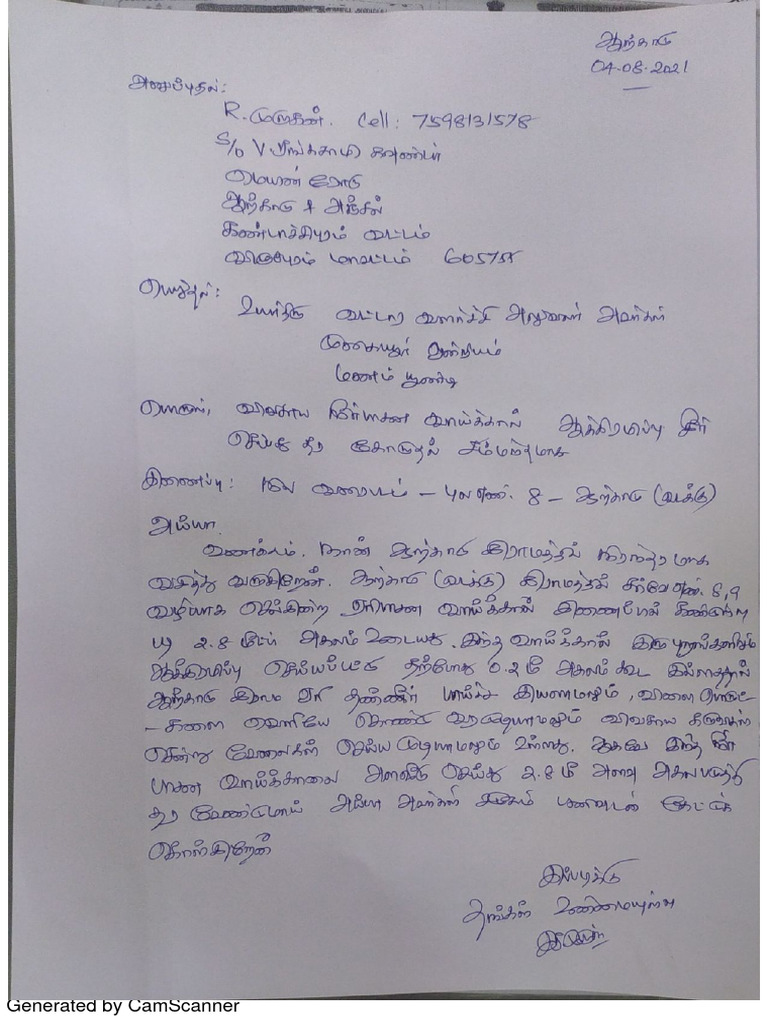 ஆற்காடு
04-08-2021
அனுப்புதல்:
R. முருகன். Cell: 7598131578
S/o V. ரங்கசாமி கவுண்டர்
மெயின் ரோடு
ஆற்காடு & அஞ்சல்
கண்டாச்சிபுரம் வட்டம்
விழுப்புரம் மாவட்டம்
பெறுதல்:
உயர்திரு வட்டார வளர்ச்சி அலுவலர் அவர்கள்
முகையூர் ஒன்றியம்
மணம் பூண்டி
பொருள், விவசாய நீர்பாசன வாய்க்கால் ஆக்கிரமிப்பு
செய்து தர கோருதல் சம்மந்தமாக
இணைப்பு: புல வரைபடம் - புல எண். 8 - ஆற்காடு (வடக்கு)
அய்யா
வணக்கம். நான் ஆற்காடு கிராமத்தில் நிரந்தரமாக
வசித்து வருகிறேன். ஆற்காடு (வடக்கு) கிராமத்தில் சர்வே எண். 8,9
வழியாக செல்கின்ற வாய்க்கால்
படி 2.8 மீட்டர் அகலம் உடையது. இந்த வாய்க்கால் இரு புறங்களிலும்
ஆக்கிரமிப்பு செய்யப்பட்டு தற்போது 0.2 மீ அகலம் கூட இல்லாததால்
ஆற்காடு ஏரி தண்ணீர் பாய்ச்ச இயலாமலும், விளை பொருட்
-களை வெளியே கொண்டு வர முடியாமலும் விவசாய
சென்று வேலைகள் செய்ய முடியாமலும் உள்ளது. ஆகவே இந்த நீர்
பாசன வாய்க்காலை அளவீடு செய்து 2.8 மீ அளவு அகலபடுத்தி
தர வேண்டுமாய் அய்யா அவர்கள் சமூகம் பணிவுடன் கேட்டுக்
கொள்கிறேன்
இப்படிக்கு
தங்கள் உண்மையுள்ள
Generated by CamScanner